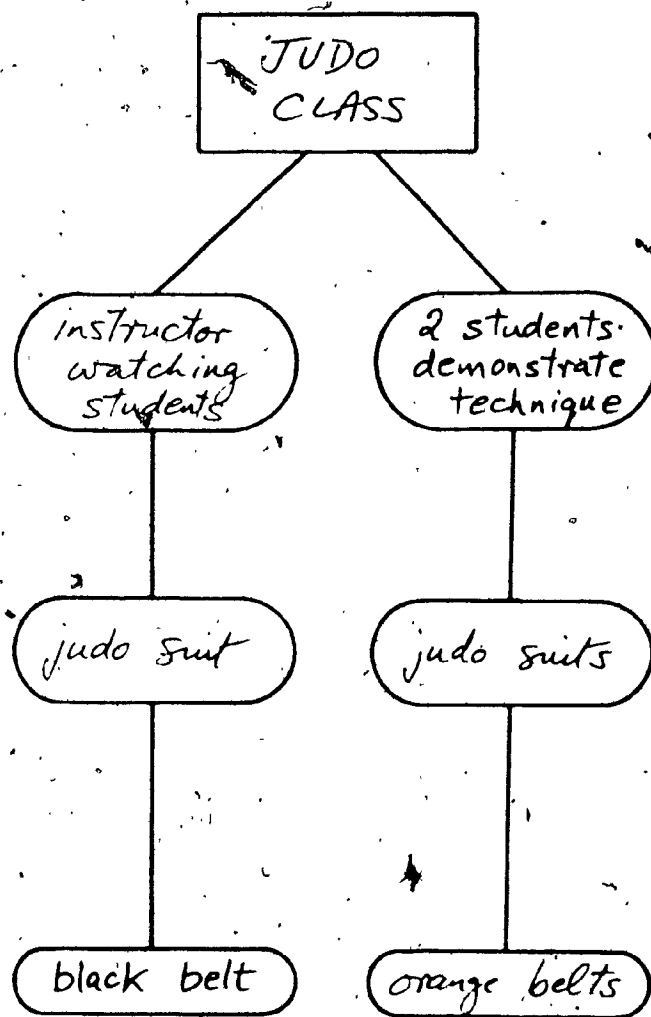 JUDO
CLASS
instructor
watching
students
2 students
demonstrate
technique
judo suit
judo suits
black belt
orange belts